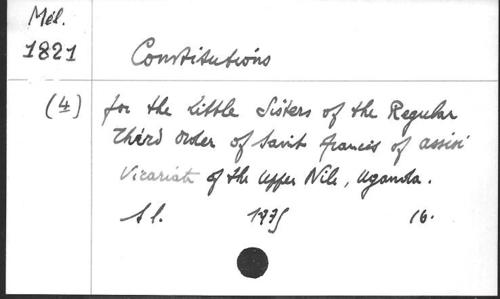 Mél.
1821 Constitutions
(4) for the Little Sisters of the Regular
Third Order of Saint Francis of Assisi
Vicariate of the Upper Nile, Uganda.
S l. 16.